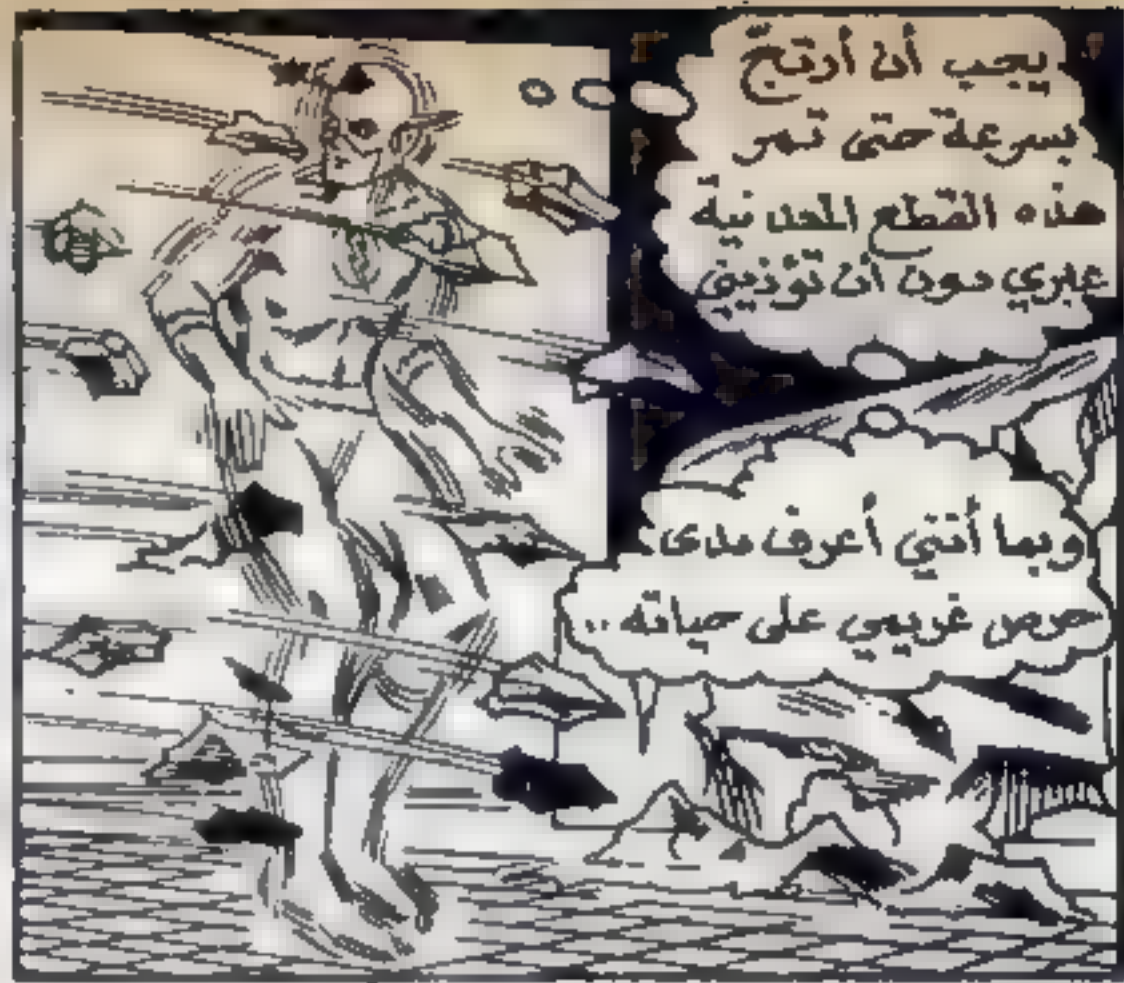 يجب أن أرتج
بسرعة حتى تمر
هذه القطع المعدنية
عبري دون أن تؤذيني
وبما أنني أعرف مدى
حرص غريمي على حياته ..